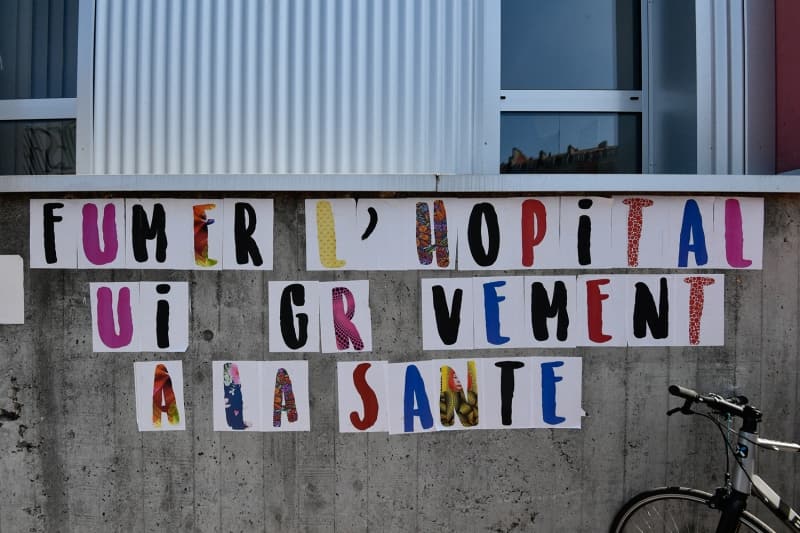 FUMER L'HOPiTAL
Ui GR VEMENT
A LA SANTE